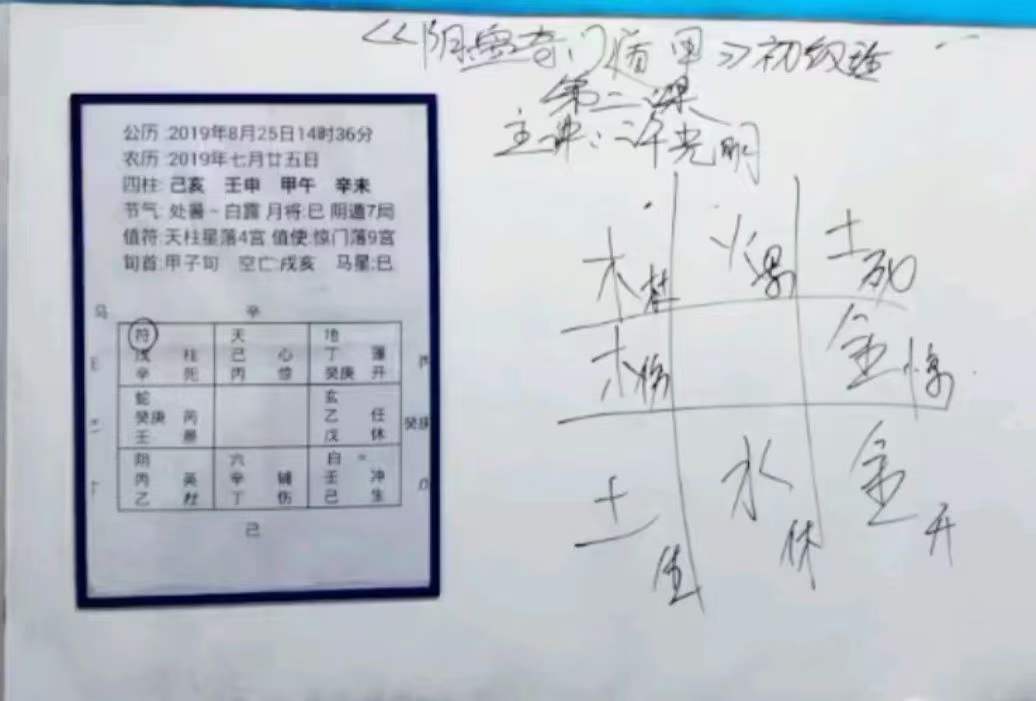 《阴盘奇门遁甲》初级班
第二课
主讲：
光明
公历:2019年8月25日14时36分
农历:2019年七月廿五日
四柱: 己亥 壬申 甲午 辛未
节气: 处暑~白露 月将:巳 阴遁7局
值符:天柱星落4宫 值使:惊门落9宫
旬首:甲子旬 空亡:戌亥 马星:巳
马 辛
符 天 地
戊 柱 己 心 丁 蓬
辛 死 丙 惊 癸庚 开
丙
蛇 玄
癸庚 芮 乙 任
壬 景 戊 休
癸庚
阴 六 白
丙 英 辛 辅 壬 冲
乙 杜 丁 伤 己 生
己
木 杜 火 景 土 死
木 伤 金 惊
土 生 水 休 金 开